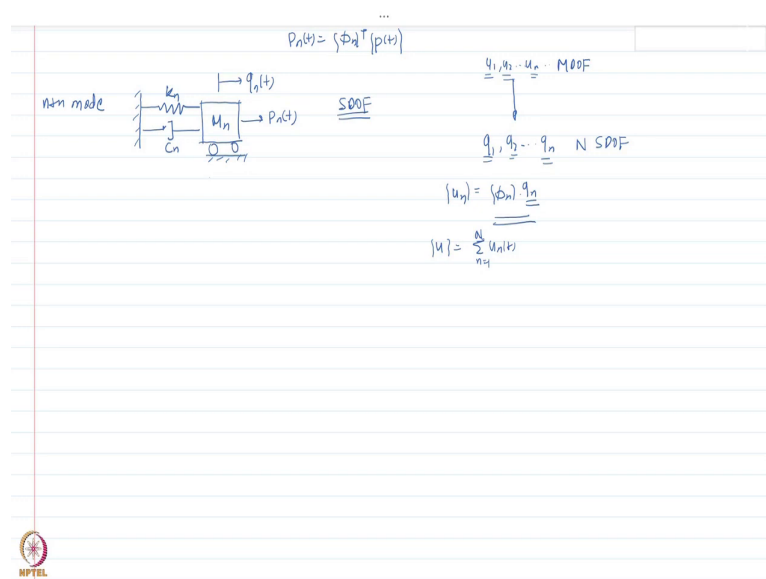 ...
Pn(t) = {ϕn}ᵀ {p(t)}
nth mode
Kn
Cn
Mn
qn(t)
Pn(t)
SDOF
u1, u2 .. un .. MDOF
q1, q2 ... qn N SDOF
{un} = {ϕn} · qn
{u} = Σ un(t)
N
n=1
NPTEL